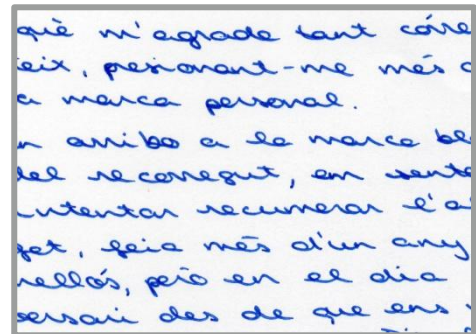 què m'agrade tant córre
eix, presionant-me més
a marca personal.
n arribo a la marca bl
del reconegut, em sente
intentar recuperar l'a
get, feia més d'un any
nellós, però en el dia
versari des de que ens